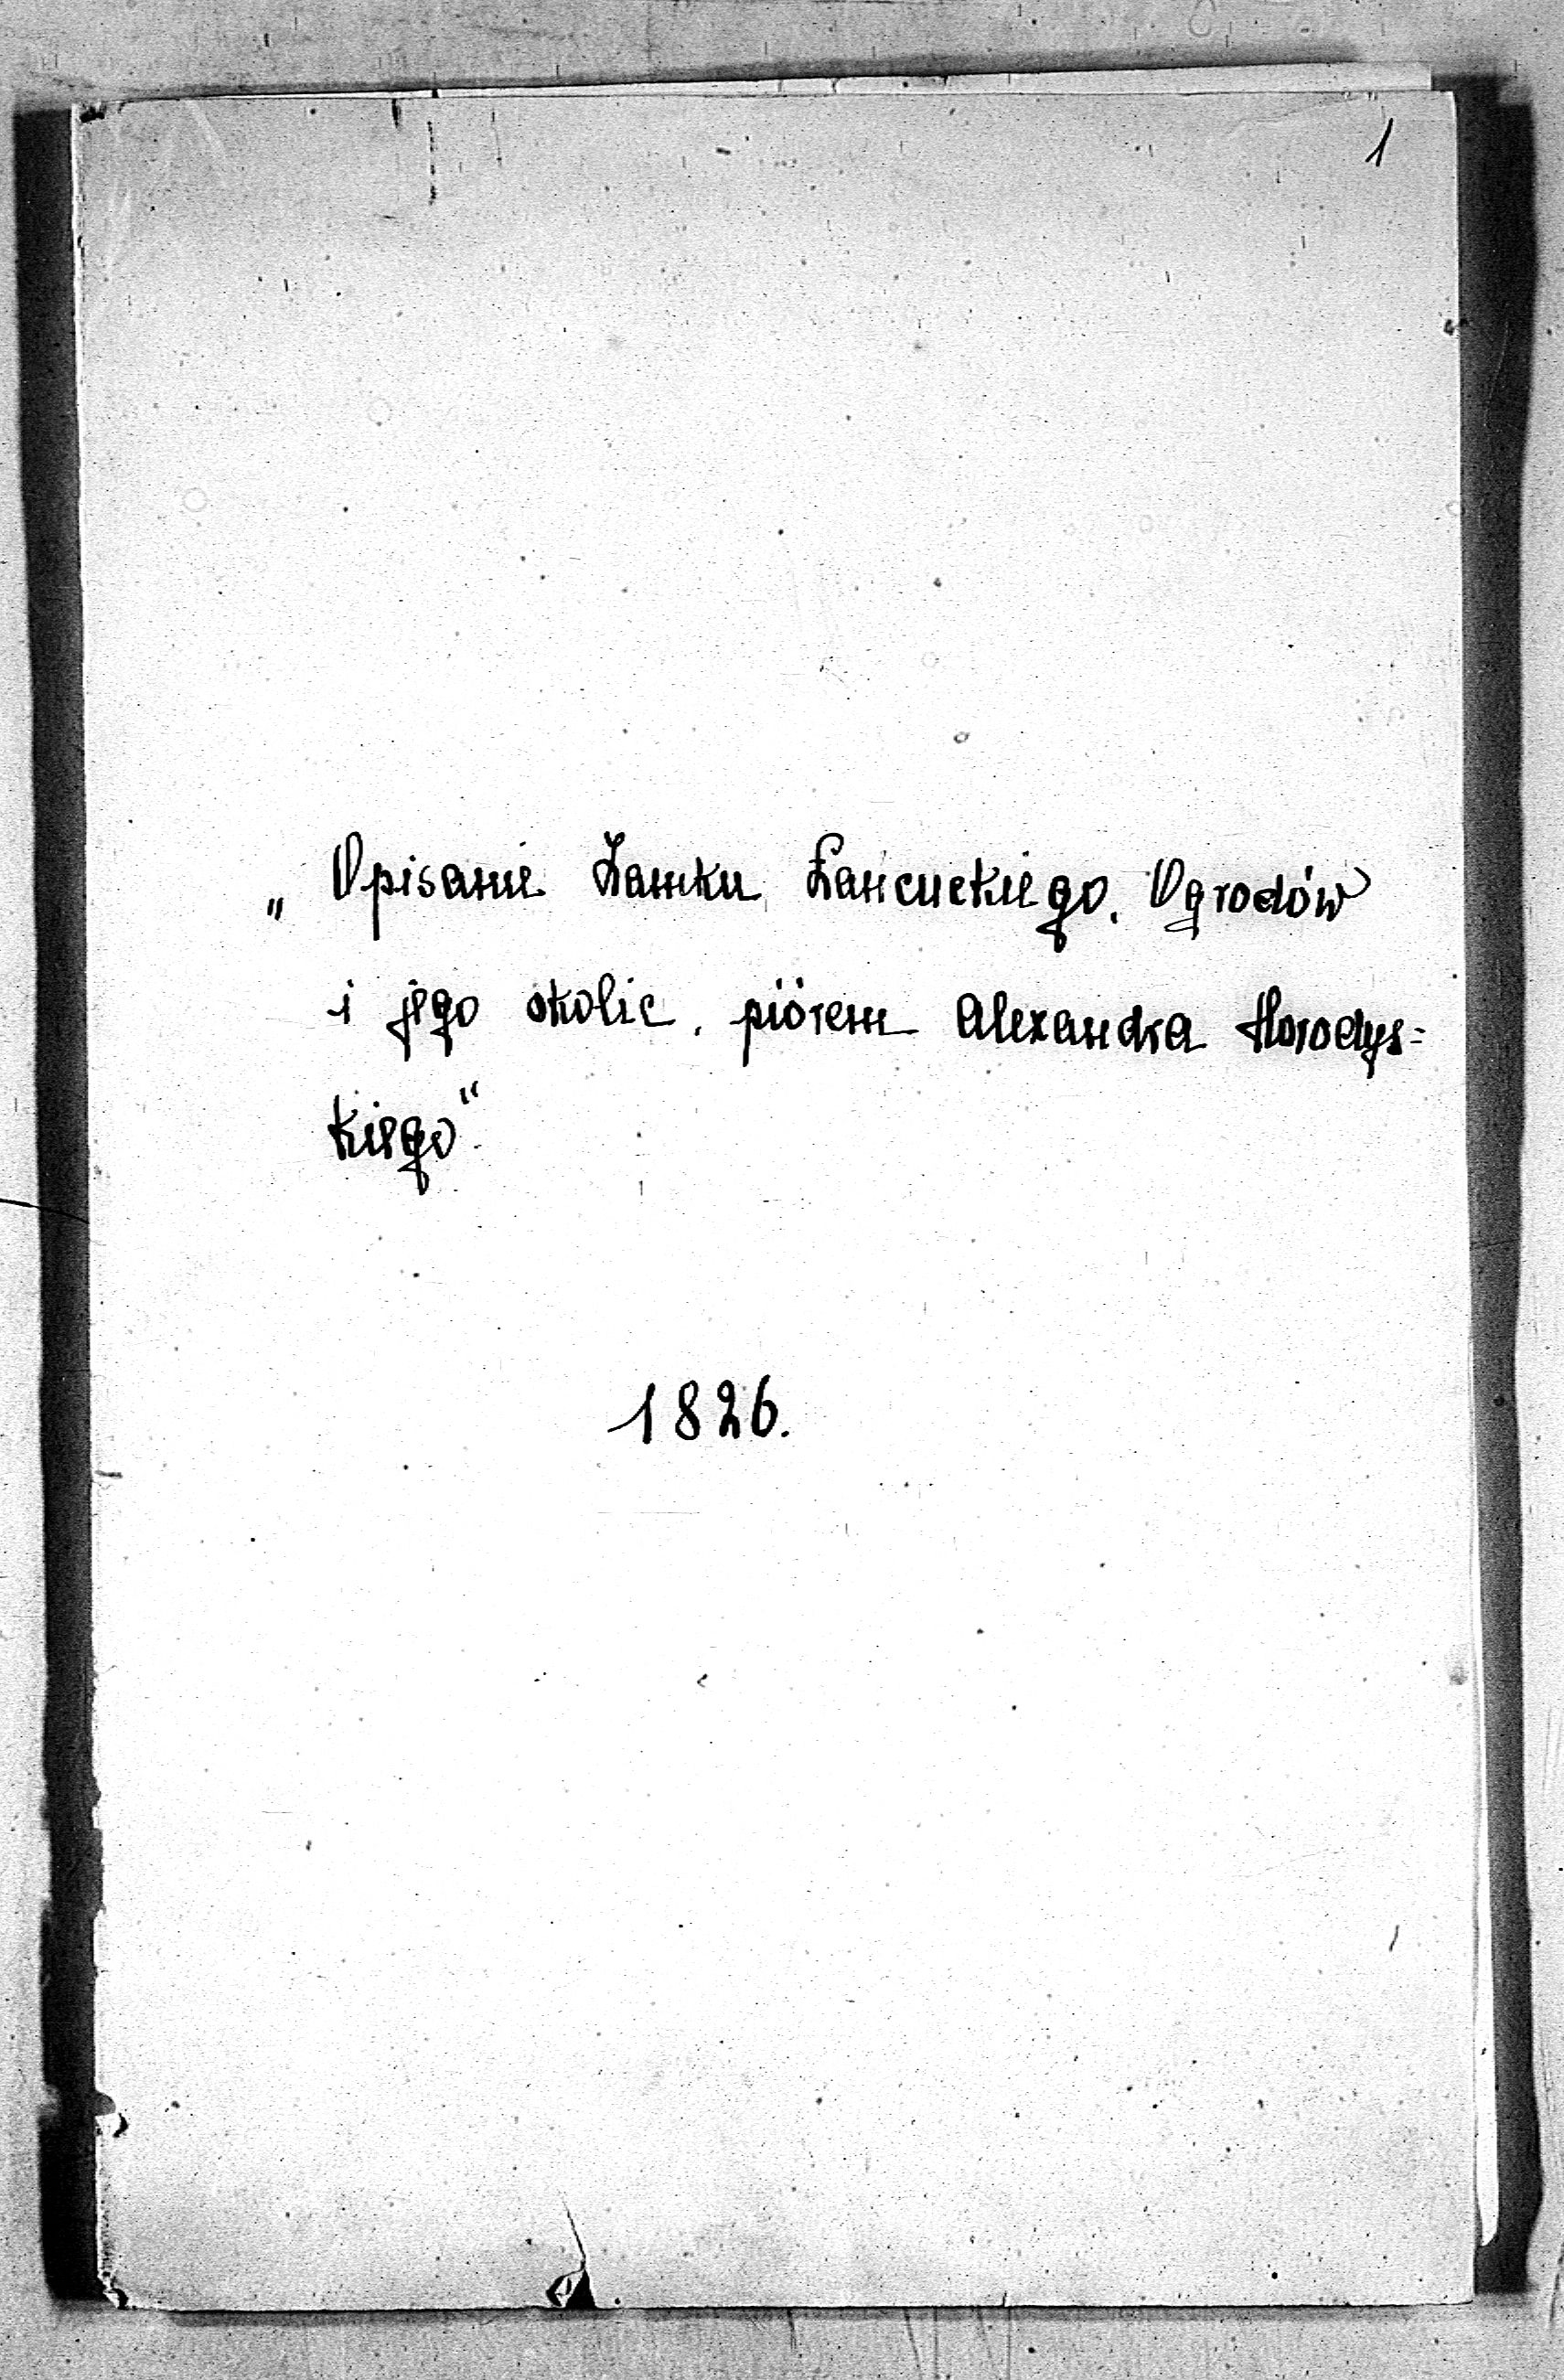 1
„Opisanie Zamku Łańcuckiego, Ogrodów
i jego okolic, piórem Alexandra Horodys=
kiego“.
1826.